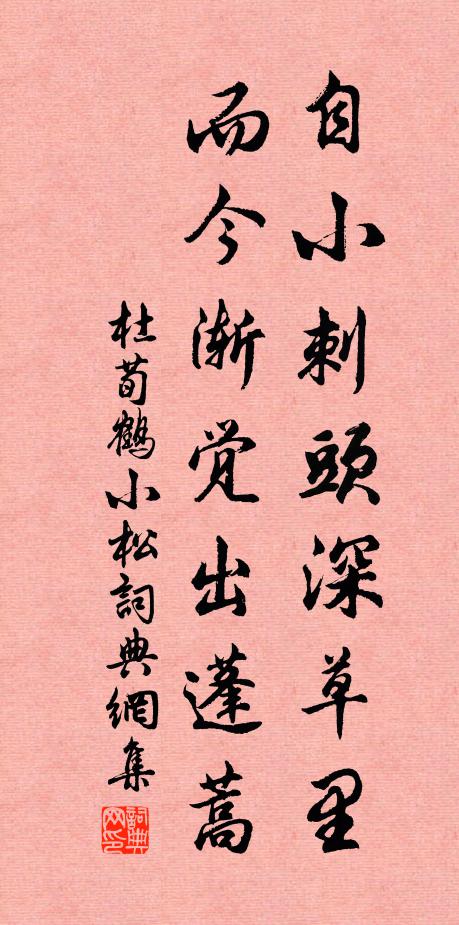 自小刺頭深草里
而今渐觉出蓬蒿
杜荀鶴小松詞典網集
詞典网印